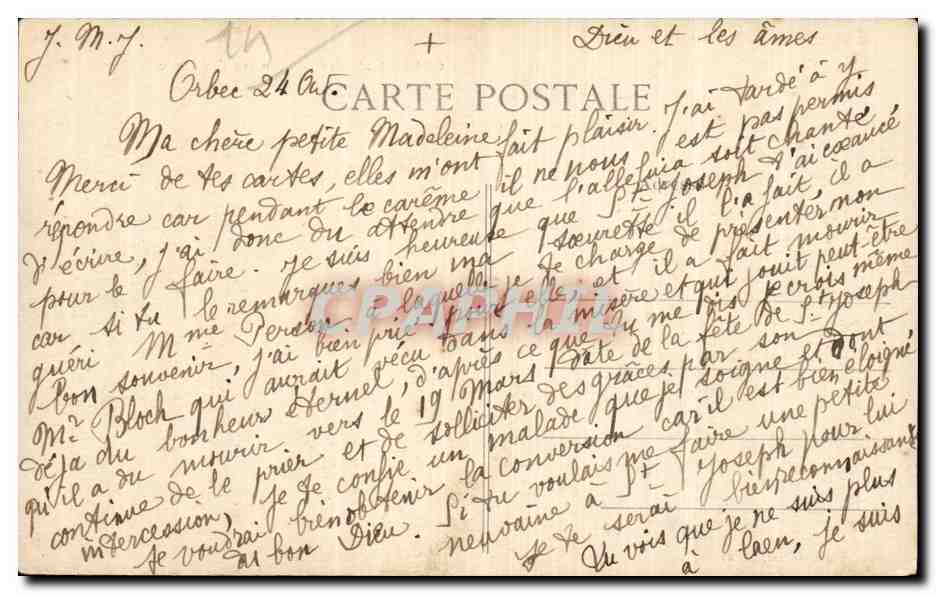 J. M. J. + Dieu et les âmes
Orbec 24 Avr.
CARTE POSTALE
Ma chère petite Madeleine
Merci de tes cartes, elles m'ont fait plaisir. J'ai tardé à y
répondre car pendant le carême il ne nous est pas permis
d'écrire, j'ai donc du attendre que l'alleluia soit chanté
pour le faire. Je suis heureuse que St Joseph t'ai exaucé,
car si tu le remarques bien ma soeurette il l'a fait, il a
guéri Mme Perdon à laquelle je te charge de présenter mon
bon souvenir, j'ai bien prié pour elle, et il a fait mourir
Mr Bloch qui aurait vécu dans la misère et qui jouit peut-être
déjà du bonheur eternel, d'après ce que tu me dis je crois même
qu'il a du mourir vers le 19 Mars date de la fête de St Joseph
continue de le prier et de solliciter des grâces par son
intercession, je te confie un malade que je soigne et dont
je voudrai bien obtenir la conversion car il est bien éloigné
du bon Dieu. Si tu voulais me faire une petite
neuvaine à St Joseph pour lui
je te serai bien reconnaissante
Tu vois que je ne suis plus
à Caen, je suis
CPAPHIL